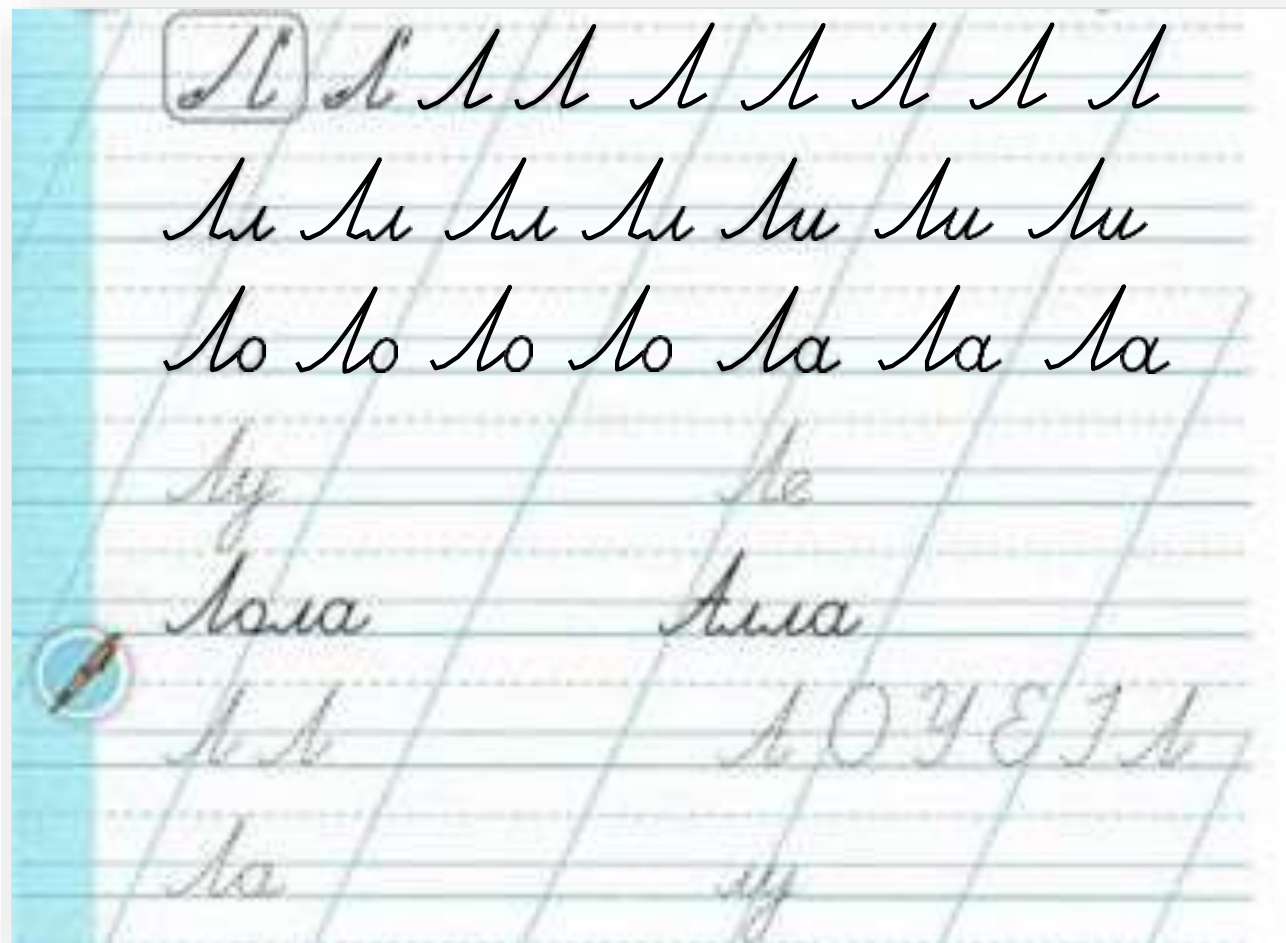 Л Л Л Л Л Л Л Л Л
Лл Лл Лл Лл Ли Ли Ли
Ло Ло Ло Ло Ла Ла Ла
Лу Ле
Лола Алла
Л Л Л О У Е І Л
Ла лу